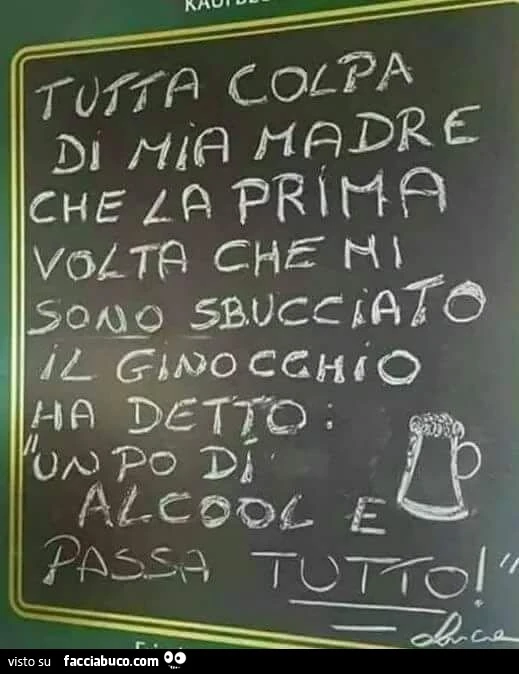 TUTTA COLPA
DI MIA MADRE
CHE LA PRIMA
VOLTA CHE MI
SONO SBUCCIATO
IL GINOCCHIO
HA DETTO:
"UN PO DI
ALCOOL E
PASSA TUTTO!"
visto su facciabuco.com